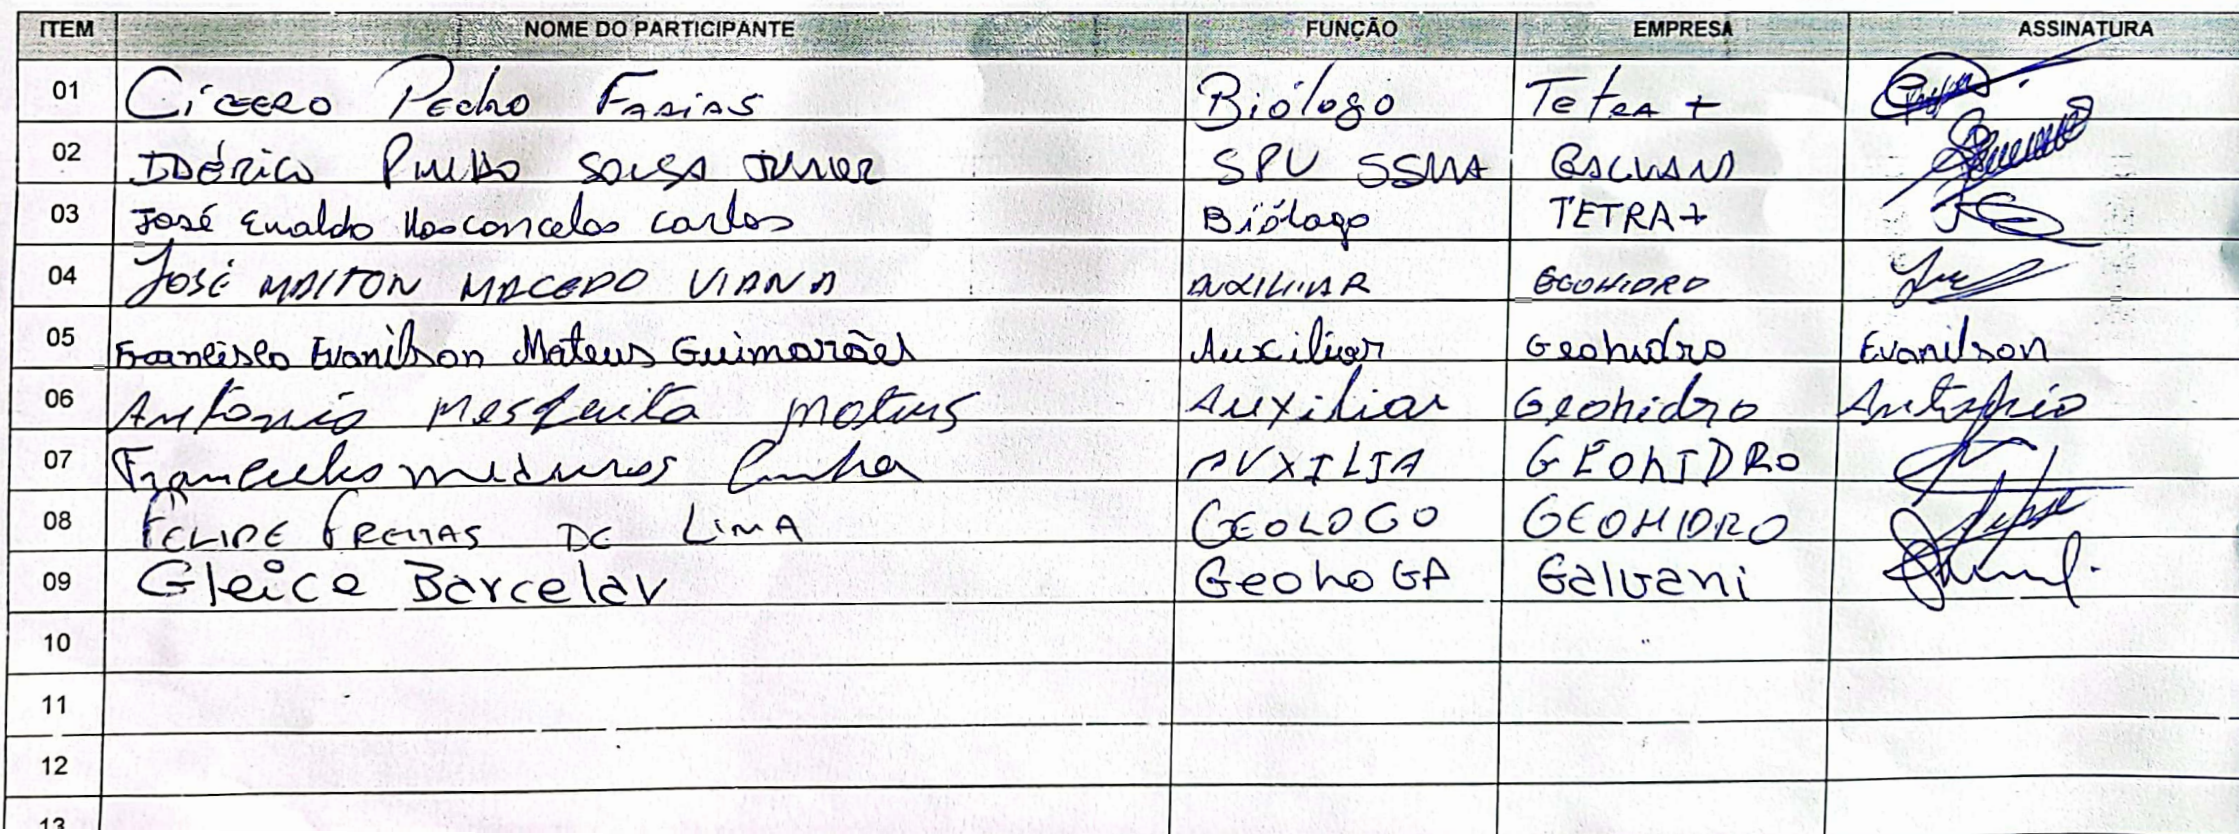 ITEM NOME DO PARTICIPANTE FUNÇÃO EMPRESA ASSINATURA
01 Cícero Pedro Farias Biólogo Tetra +
02 Sousa Junior SPV SSMA Galvani
03 José Evaldo Vasconcelos Carlos Biólogo TETRA+
04 José MAITON MACEDO VIANA AUXILIAR GEOHIDRO
05 Francisco Evanilson Mateus Guimarães Auxiliar Geohidro Evanilson
06 Antonio Mesquita Mateus Auxiliar Geohidro Antonio
07 Cunha AUXILIA GEOHIDRO
08 FELIPE FREITAS DE LIMA GEOLOGO GEOHIDRO
09 Gleice Barcelar Geologa Galvani
10
11
12
13